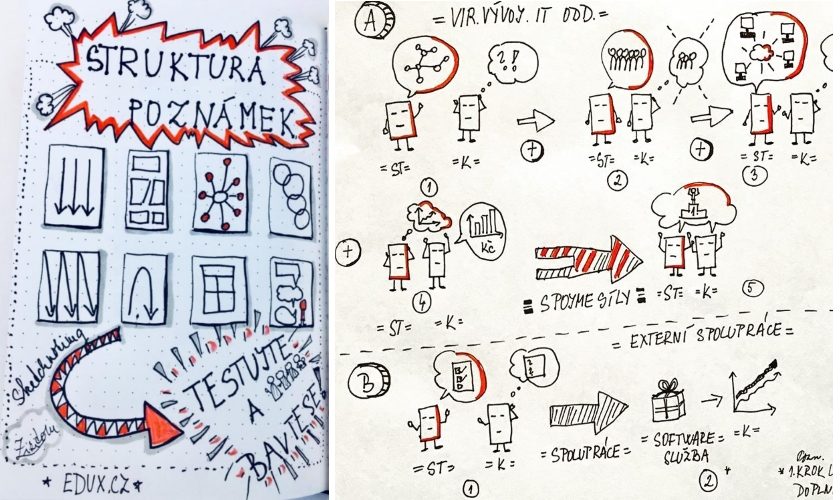 STRUKTURA
POZNÁMEK
Sketchnoting
TESTUJTE
A
BAVTE SE!
* EDUX.CZ *
A
= VIR. VÝVOJ. IT ODD. =
? . ! .
= ST =
= K =
1
+
= ST =
= K =
2
+
= ST =
= K =
3
+
KČ
= ST =
= K =
4
= SPOJME SÍLY =
= ST =
= K =
5
= EXTERNÍ SPOLUPRÁCE =
B
= ST =
= K =
1
= SPOLUPRÁCE =
= SOFTWARE =
SLUŽBA
2 *
= K =
* 1. KROK
DOPLN